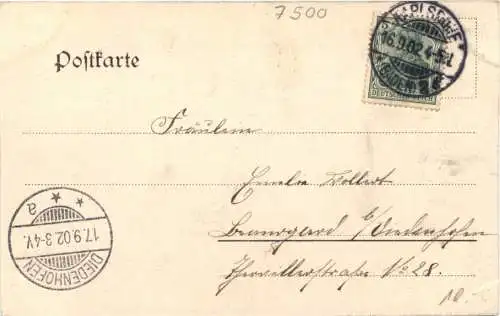 7500
KARLSRUHE
16.9.02 4-5N
(BADEN)
DEUTSCHES REICH
Postkarte
Fräulein
Emalie Vollert
Beauregard b/Diedenhofen
Thervillerstraße No 28.
* * a
17.9.02 3-4V.
DIEDENHOFEN
10.-